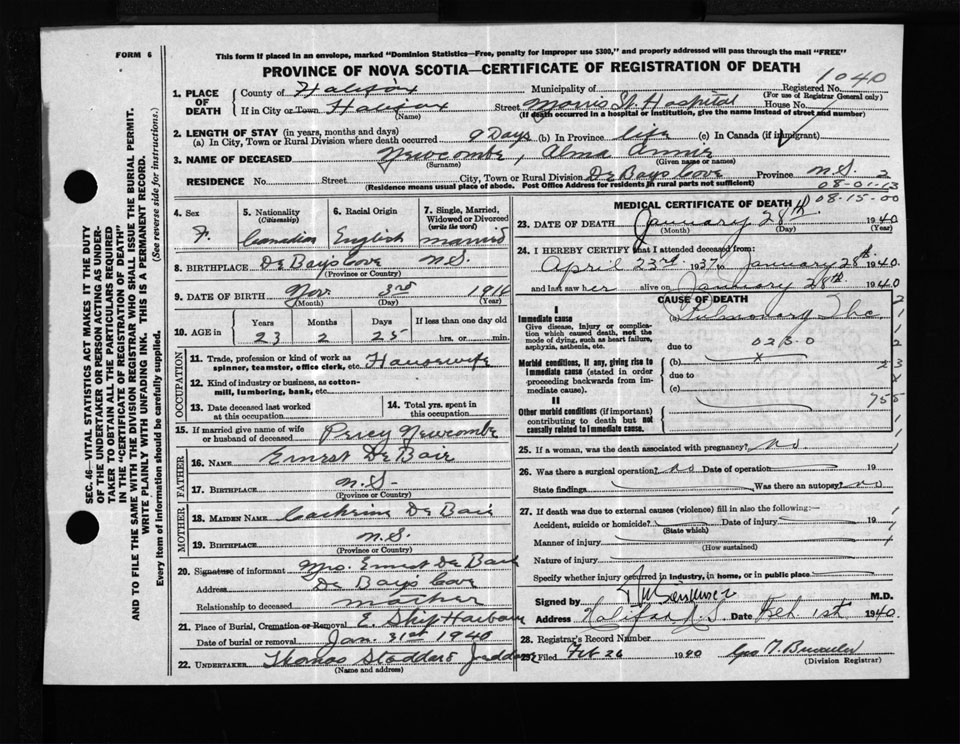 FORM 6
This form if placed in an envelope, marked "Dominion Statistics—Free, penalty for improper use $300," and properly addressed will pass through the mail "FREE"
PROVINCE OF NOVA SCOTIA—CERTIFICATE OF REGISTRATION OF DEATH
1040
1. PLACE OF DEATH
County of Halifax Municipality of Registered No.
(For use of Registrar General only)
If in City or Town Halifax Street Morris St. Hospital House No.
(Name) (If death occurred in a hospital or institution, give the name instead of street and number)
2. LENGTH OF STAY (in years, months and days)
(a) In City, Town or Rural Division where death occurred 9 Days (b) In Province life (c) In Canada (if immigrant)
3. NAME OF DECEASED Newcombe, Alma Annie
(Surname) (Given name or names)
RESIDENCE No. Street City, Town or Rural Division De Bays Cove Province N.S. 2
(Residence means usual place of abode. Post Office Address for residents in rural parts not sufficient) 08-01-13
08-15-00
4. Sex F.
5. Nationality (Citizenship) Canadian
6. Racial Origin English
7. Single, Married, Widowed or Divorced (write the word) married
8. BIRTHPLACE De Bays Cove N.S.
(Province or Country)
9. DATE OF BIRTH Nov. 3rd 1916
(Month) (Day) (Year)
10. AGE in Years Months Days If less than one day old
23 2 25 hrs. or min.
OCCUPATION
11. Trade, profession or kind of work as spinner, teamster, office clerk, etc. Housewife
12. Kind of industry or business, as cotton-mill, lumbering, bank, etc.
13. Date deceased last worked at this occupation
14. Total yrs. spent in this occupation
15. If married give name of wife or husband of deceased Percy Newcombe
FATHER
16. NAME Ernest De Baie
17. BIRTHPLACE N.S.
(Province or Country)
MOTHER
18. MAIDEN NAME Cathrine De Baie
19. BIRTHPLACE N.S.
(Province or Country)
20. Signature of informant Mrs. Ernest De Baie
Address De Bay's Cove
Relationship to deceased mother
21. Place of Burial, Cremation or Removal E. Ship Harbour
Date of burial or removal Jan. 31st 1940
22. UNDERTAKER Thomas Stoddart
(Name and address)
MEDICAL CERTIFICATE OF DEATH
23. DATE OF DEATH January 28th 1940
(Month) (Day) (Year)
24. I HEREBY CERTIFY that I attended deceased from:
April 23rd 1937 to January 28th 1940
and last saw her alive on January 28th 1940
CAUSE OF DEATH
I
Immediate cause
Give disease, injury or complication which caused death, not the mode of dying, such as heart failure, asphyxia, asthenia, etc.
(a) Pulmonary Tbc
due to 02B-0
Morbid conditions, if any, giving rise to immediate cause (stated in order proceeding backwards from immediate cause).
(b) x
due to
(c)
II
Other morbid conditions (if important) contributing to death but not causally related to immediate cause.
25. If a woman, was the death associated with pregnancy? no
26. Was there a surgical operation? no Date of operation 19
State findings Was there an autopsy? no
27. If death was due to external causes (violence) fill in also the following:—
Accident, suicide or homicide? Date of injury 19
(State which)
Manner of injury
(How sustained)
Nature of injury
Specify whether injury occurred in industry, in home, or in public place
Signed by M.D.
Address Halifax N.S. Date Feb 1st 1940
28. Registrar's Record Number
29. Filed Feb 26 1940 Geo
(Division Registrar)
SEC. 46—VITAL STATISTICS ACT MAKES IT THE DUTY
OF THE UNDERTAKER OR PERSON ACTING AS UNDER-
TAKER TO OBTAIN ALL THE PARTICULARS REQUIRED
IN THE "CERTIFICATE OF REGISTRATION OF DEATH"
AND TO FILE THE SAME WITH THE DIVISION REGISTRAR WHO SHALL ISSUE THE BURIAL PERMIT.
WRITE PLAINLY WITH UNFADING INK. THIS IS A PERMANENT RECORD.
Every item of information should be carefully supplied. (See reverse side for instructions.)